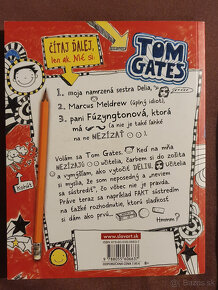 ČÍTAJ ĎALEJ,
len ak NIE si:
TOM
GATES
1. moja namrzená sestra Delia,
2. Marcus Meldrew (úplný idiot),
3. pani Fúzyngtonová, ktorá
má (a nie je také ľahké
na ne NEZÍZAŤ
Volám sa Tom Gates. Keď na mňa
NEZÍZAJÚ učitelia, čarbem si do zošita
a vymýšľam, ako vytočiť DELIU. Učitelia
si myslia, že sa „neviem
sústrediť", čo vôbec nie je pravda.
Práve teraz sa napríklad FAKT sústredím
na ťažké rozhodnutie, ktorú sladkosť
si dám ako prvú...
Hmmmm
?
Koňať
www.slovart.sk
bazos.sk